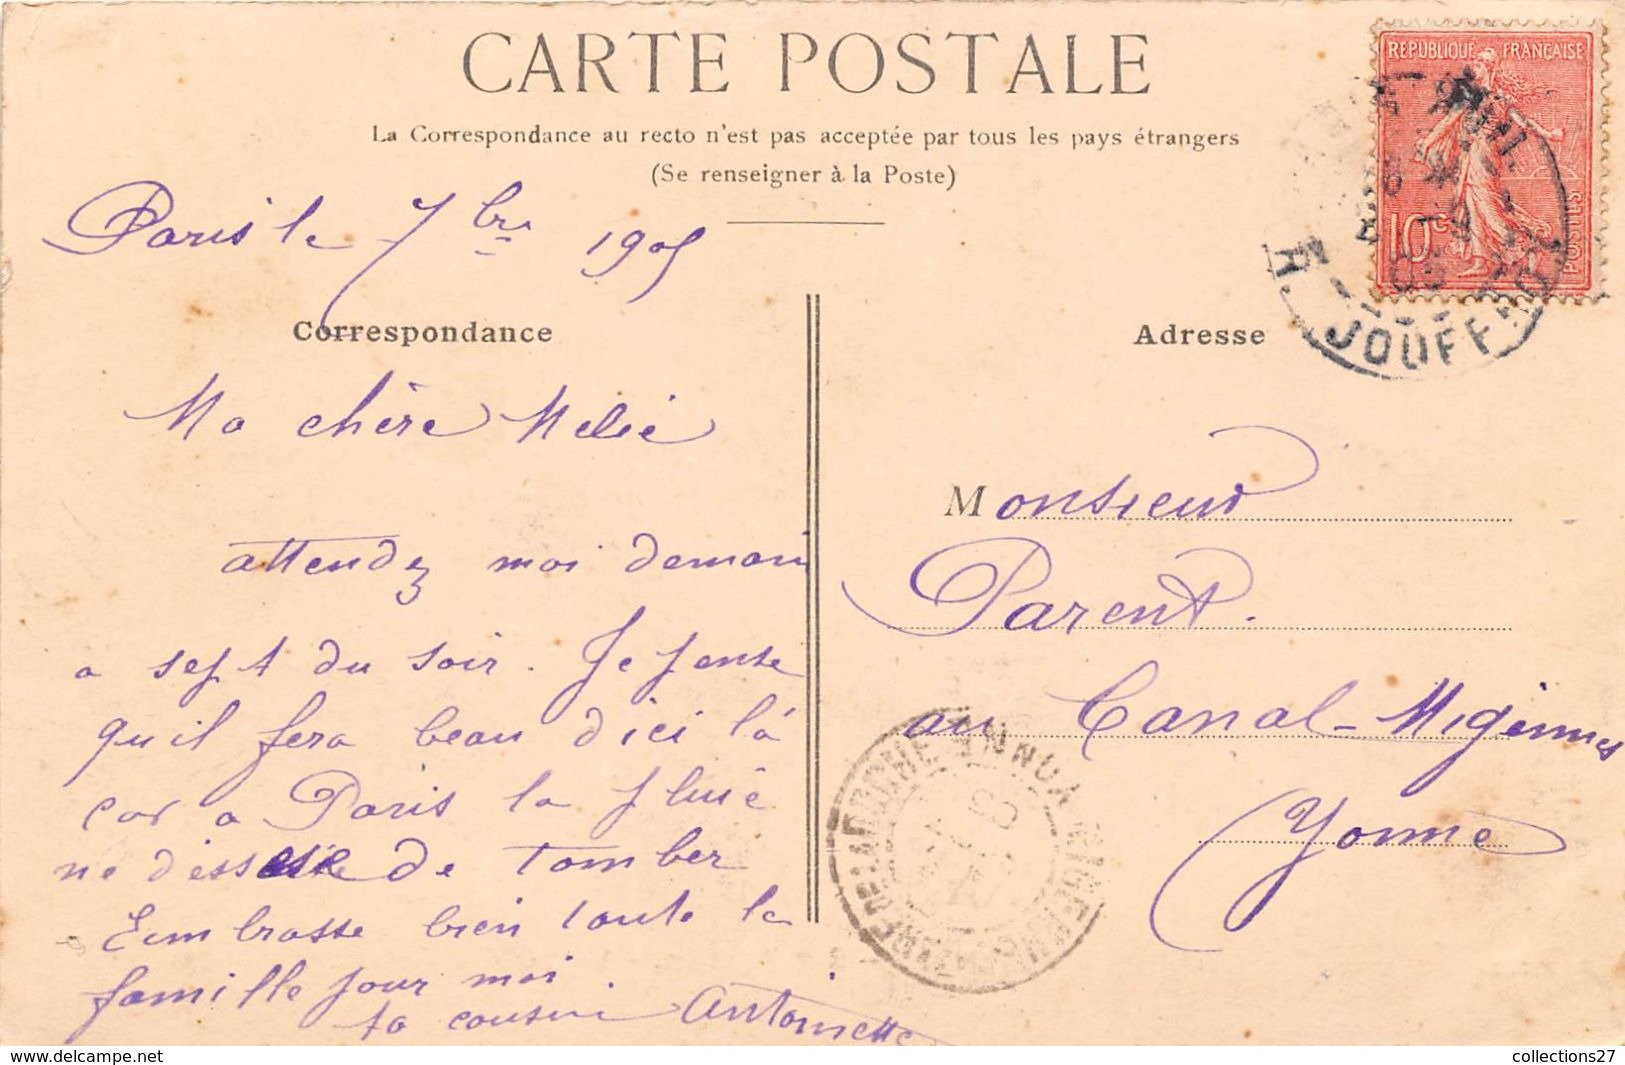 CARTE POSTALE
La Correspondance au recto n'est pas acceptée par tous les pays étrangers
(Se renseigner à la Poste)
REPUBLIQUE FRANÇAISE
10c
POSTES
R. JOUFFROY
Paris le 7 bre 1905
Correspondance
Ma chère Melie
attendez moi demain
a sept du soir. Je pense
qu il fera beau d'ici là
car a Paris la pluie
ne désse de tomber
Embrasse bien toute la
famille pour moi
ta cousine Antoinette
Adresse
Monsieur
Parent.
au Canal-Migennes
Yonne
LAROCHE YONNE
05
collections27